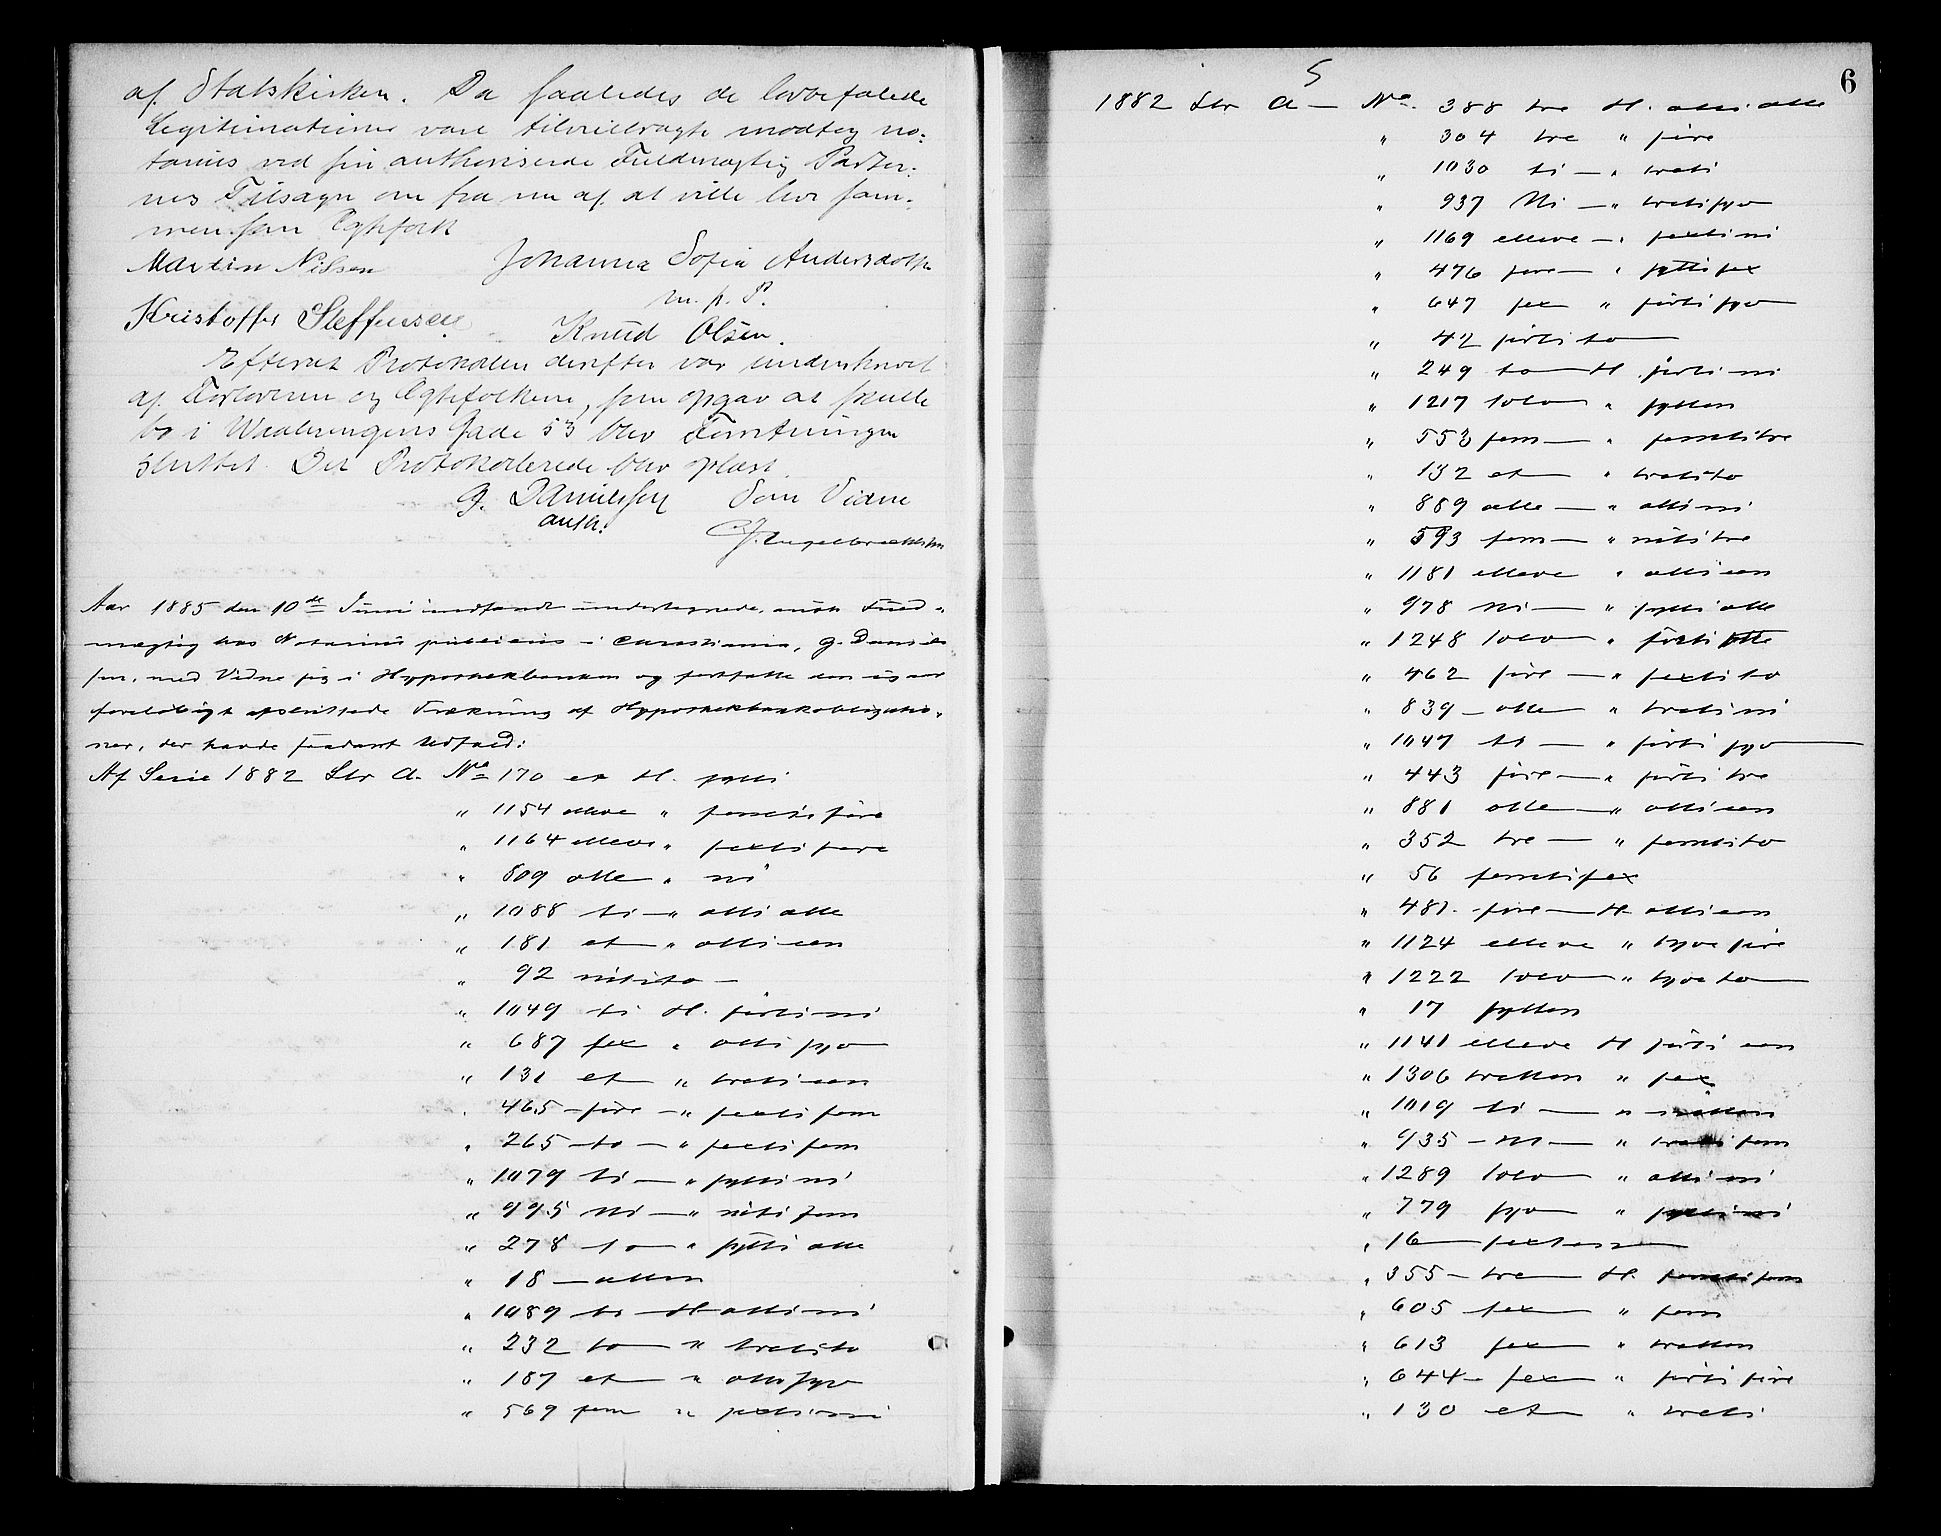 af Statskirken. Da saaledes de lovbefalede
Legitimationer vare tilveiebragte modtog no-
tarius ved sin authoriserede Fuldmægtig Parter-
nes Tilsagn om fra nu af at ville leve sam-
men som Egtefolk
Martin Nilsen Johanna Sofia Andersdotter
m. p. P.
Kristoffer Steffensen Knud Olsen.
Efterat Protokollen derefter var underskrevet
af Forloverne og Egtefolkene, som opgav at skulle
bo i Waalerengens Gade 53 blev Forretningen
sluttet. Det Protokollerede blev oplæst.
G. Danielssen Som Vidne
auth.
Engelbrechtsen
Aar 1885 den 10de Juni indfandt undertegnede, auth Fuld-
mægtig hos Notarius publicus i Christiania, G. Daniels
sen, med Vidne sig i Hypothekbanken og fortsatte den igaar
foreløbigt afsluttede Trækning af Hypothekbankobligatio-
ner, der havde saadant Udfald:
Af Serie 1882 Ltr A. No 170 et H. sytti
" 1154 elleve " femtifire
" 1164 elleve " sextifire
" 809 otte " ni
" 1088 ti — " ottiotte
" 181 et " ottieen
" 92 nitito —
" 1049 ti H. førtini
" 687 sex " ottisyv
" 131 et " tretieen
" 465 — fire — " sextifem
" 265 — to — " sextifem
" 1079 ti — " syttini
" 995 Ni — " nitifem
" 278 to " syttiotte
" 18 — atten
" 1089 ti H ottini
" 232 to " tretito
" 187 et " ottisyv
" 569 fem " sextini
6
5
1882 Ltr A — No. 388 tre H. ottiotte
" 304 tre " fire
" 1030 ti — " treti
" 937 Ni — " tretisyv
" 1169 elleve — " sextini
" 476 fire — " syttisex
" 647 sex " førtisyv
" 42 førtito
" 249 to H. førtini
" 1217 tolv " sytten
" 553 fem — " femtitre
" 132 et " tretito
" 889 otte — " ottini
" 593 fem — " nititre
" 1181 elleve " ottieen
" 978 Ni — " syttiotte
" 1248 tolv " førtiotte
" 462 fire — " sextito
" 839 — otte " tretini
" 1047 ti — " førtisyv
" 443 fire — " førtitre
" 881 otte — " ottieen
" 352 tre — " femtito
" 56 femtisex
" 481 fire — H ottieen
" 1124 elleve " tyvefire
" 1222 tolv " tyveto
" 17 sytten
" 1141 elleve H førtieen
" 1306 tretten " sex
" 1019 ti — " nitten
" 935 — ni — " tretifem
" 1289 tolv " ottini
" 779 syv " syttini
" 16 sexten
" 355 — tre H. femtifem
" 605 sex " fem
" 613 sex " tretten
" 644 — sex " førtifire
" 130 et " treti